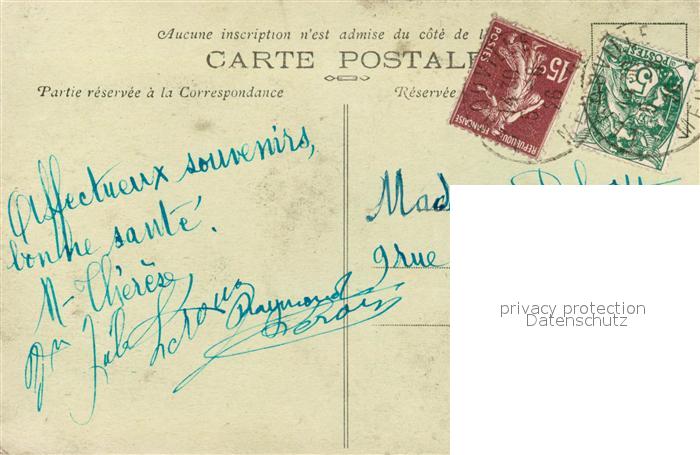 Aucune inscription n'est admise du côté de l
CARTE POSTALE
Partie réservée à la Correspondance
Réservée
15c
POSTES
REPUBLIQUE FRANÇAISE
5
POSTES
Affectueux souvenirs,
bonne santé.
M- Thérèse,
Leroux
Raymond
Mad
9 rue
privacy protection
Datenschutz